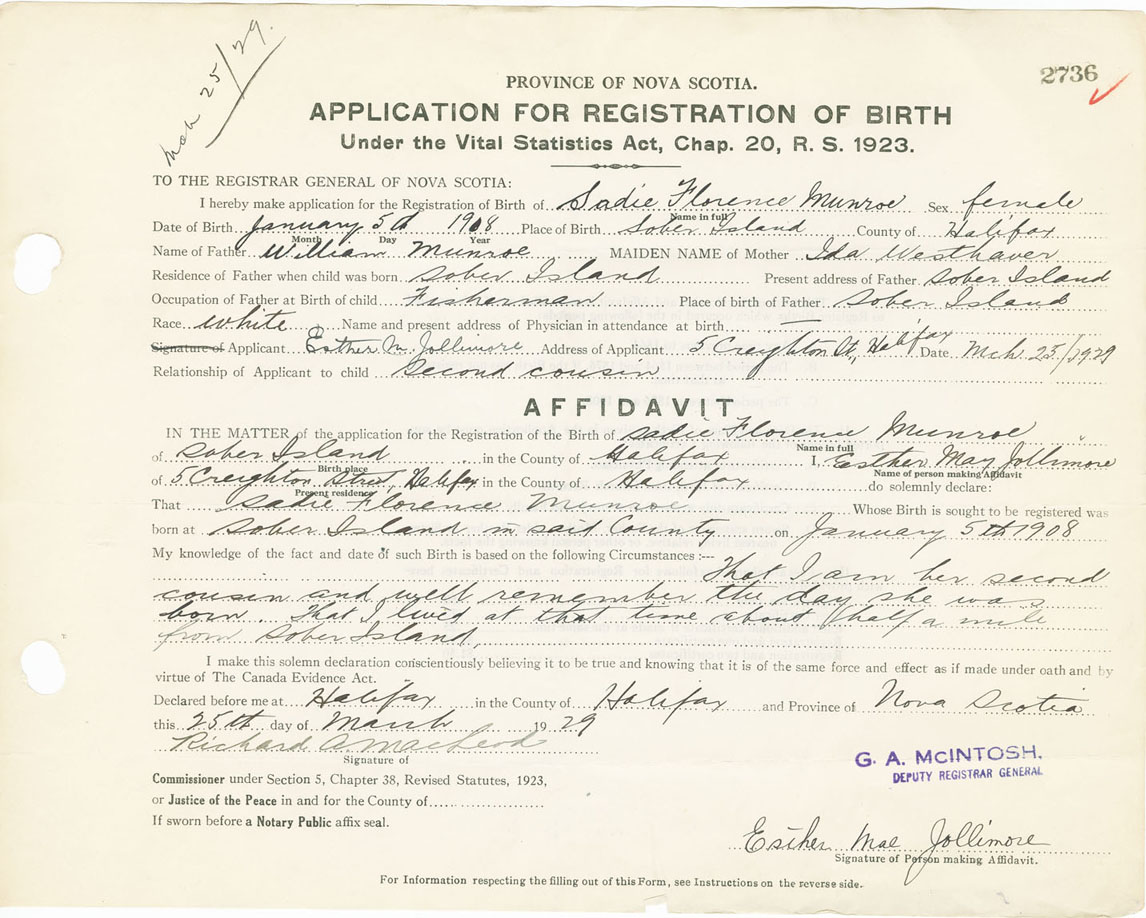 Mch 25/29.
2736
PROVINCE OF NOVA SCOTIA.
APPLICATION FOR REGISTRATION OF BIRTH
Under the Vital Statistics Act, Chap. 20, R. S. 1923.
TO THE REGISTRAR GENERAL OF NOVA SCOTIA:
I hereby make application for the Registration of Birth of Sadie Florence Munroe Sex female
Name in full
Date of Birth January 5th 1908 Place of Birth Sober Island County of Halifax
Month Day Year
Name of Father William Munroe MAIDEN NAME of Mother Ida Westhaver
Residence of Father when child was born Sober Island Present address of Father Sober Island
Occupation of Father at Birth of child Fisherman Place of birth of Father Sober Island
Race White Name and present address of Physician in attendance at birth —
Signature of Applicant Esther M. Jollimore Address of Applicant 5 Creighton St, Halifax Date Mch. 25/1929
Relationship of Applicant to child Second cousin
AFFIDAVIT
IN THE MATTER of the application for the Registration of the Birth of Sadie Florence Munroe
Name in full
of Sober Island in the County of Halifax I, Esther May Jollimore
Birth place Name of person making Affidavit
of 5 Creighton Street, Halifax in the County of Halifax do solemnly declare:
Present residence
That Sadie Florence Munroe Whose Birth is sought to be registered was
born at Sober Island in said County on January 5th 1908
My knowledge of the fact and date of such Birth is based on the following Circumstances :---
That I am her second
cousin and well remember the day she was
born. That I lived at that time about half a mile
from Sober Island.
I make this solemn declaration conscientiously believing it to be true and knowing that it is of the same force and effect as if made under oath and by
virtue of The Canada Evidence Act.
Declared before me at Halifax in the County of Halifax and Province of Nova Scotia
this 25th day of March 1929
Richard A MacLeod
Signature of
Commissioner under Section 5, Chapter 38, Revised Statutes, 1923,
or Justice of the Peace in and for the County of
If sworn before a Notary Public affix seal.
G. A. MCINTOSH.
DEPUTY REGISTRAR GENERAL
Esther Mae Jollimore
Signature of Person making Affidavit.
For Information respecting the filling out of this Form, see Instructions on the reverse side.